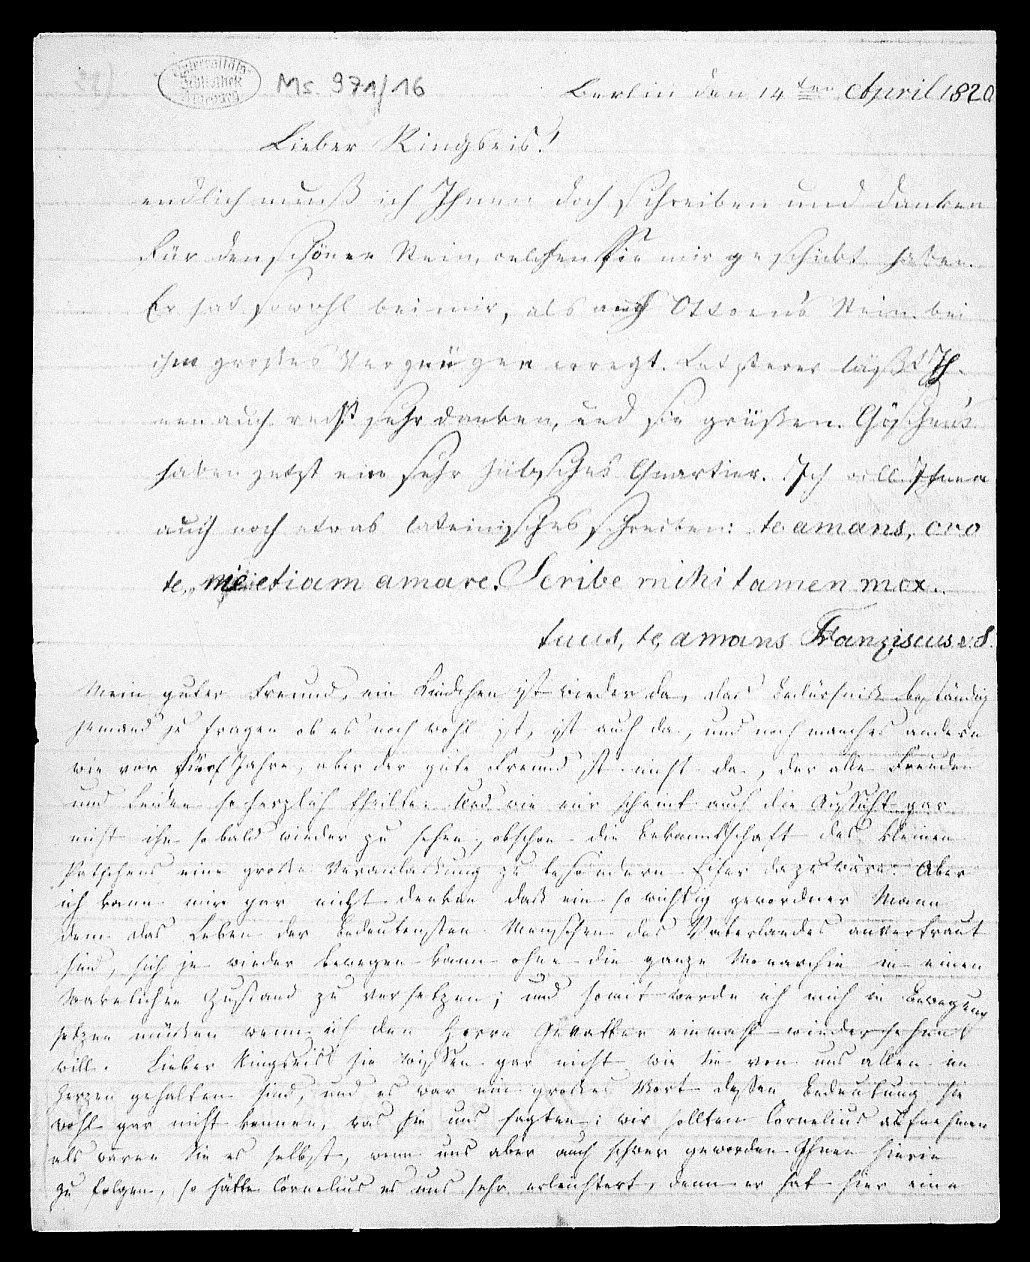 Universitäts-
Bibliothek
Marburg
Ms. 971/16
Berlin den 14ten April 1820
Lieber Ringseis!
endlich muß ich Ihnen doch schreiben und danken
für den schönen Stein, welchen Sie mir geschickt haben.
Er hat sowohl bei mir, als auch Ottoens Stein bei
ihm großes Vergnügen erregt. Letzterer läßt Ih-
nen auch recht sehr danken, und sie grüßen. Göschens
haben jetzt ein sehr hübsches Quartier. Ich will Ihnen
auch noch etwas lateinisches schreiben: te amans, oro
te, me etiam amare. Scribe mihi tamen mox.
tuus, te amans Franziscus v. S.
Mein guter Freund, ein Kindchen ist wieder da, das Bedürfniß beständig
jemand zu fragen ob es noch wohl ist, ist auch da, und noch manches andere
wie vor fünf Jahre, aber der gute Freund ist nicht da, der alle Freuden
und Leiden so herzlich theilte. Und wie mir scheint auch die Aussicht gar
nicht ihn so bald wieder zu sehen, obschon die Bekanntschaft des kleinen
eine große Veranlassung zu besondern Eifer dazu wäre. Aber
ich kann mir gar nicht denken daß ein so wichtig gewordner Mann
dem das Leben der bedeutensten Menschen des Vaterlandes anvertraut
sind, sich je wieder bewegen kann ohne die ganze Monarchie in einen
wakelichen Zustand zu versetzen; und somit werde ich mich in Bewegung
setzen müssen wenn ich den Herrn Gevatter einmahl wiedersehen
will. Lieber Ringseis Sie wissen gar nicht wie Sie von uns allen im
Herzen gehalten sind, und es war ein großes Wort dessen Bedeutung Sie
wohl gar nicht kennen, was Sie uns sagten: wir sollten Cornelius aufnehmen
als wären Sie es selbst, wenn uns aber auch schwer geworden Ihnen hierin
zu folgen, so hätte Cornelius es uns sehr erleichtert, denn er hat hier eine